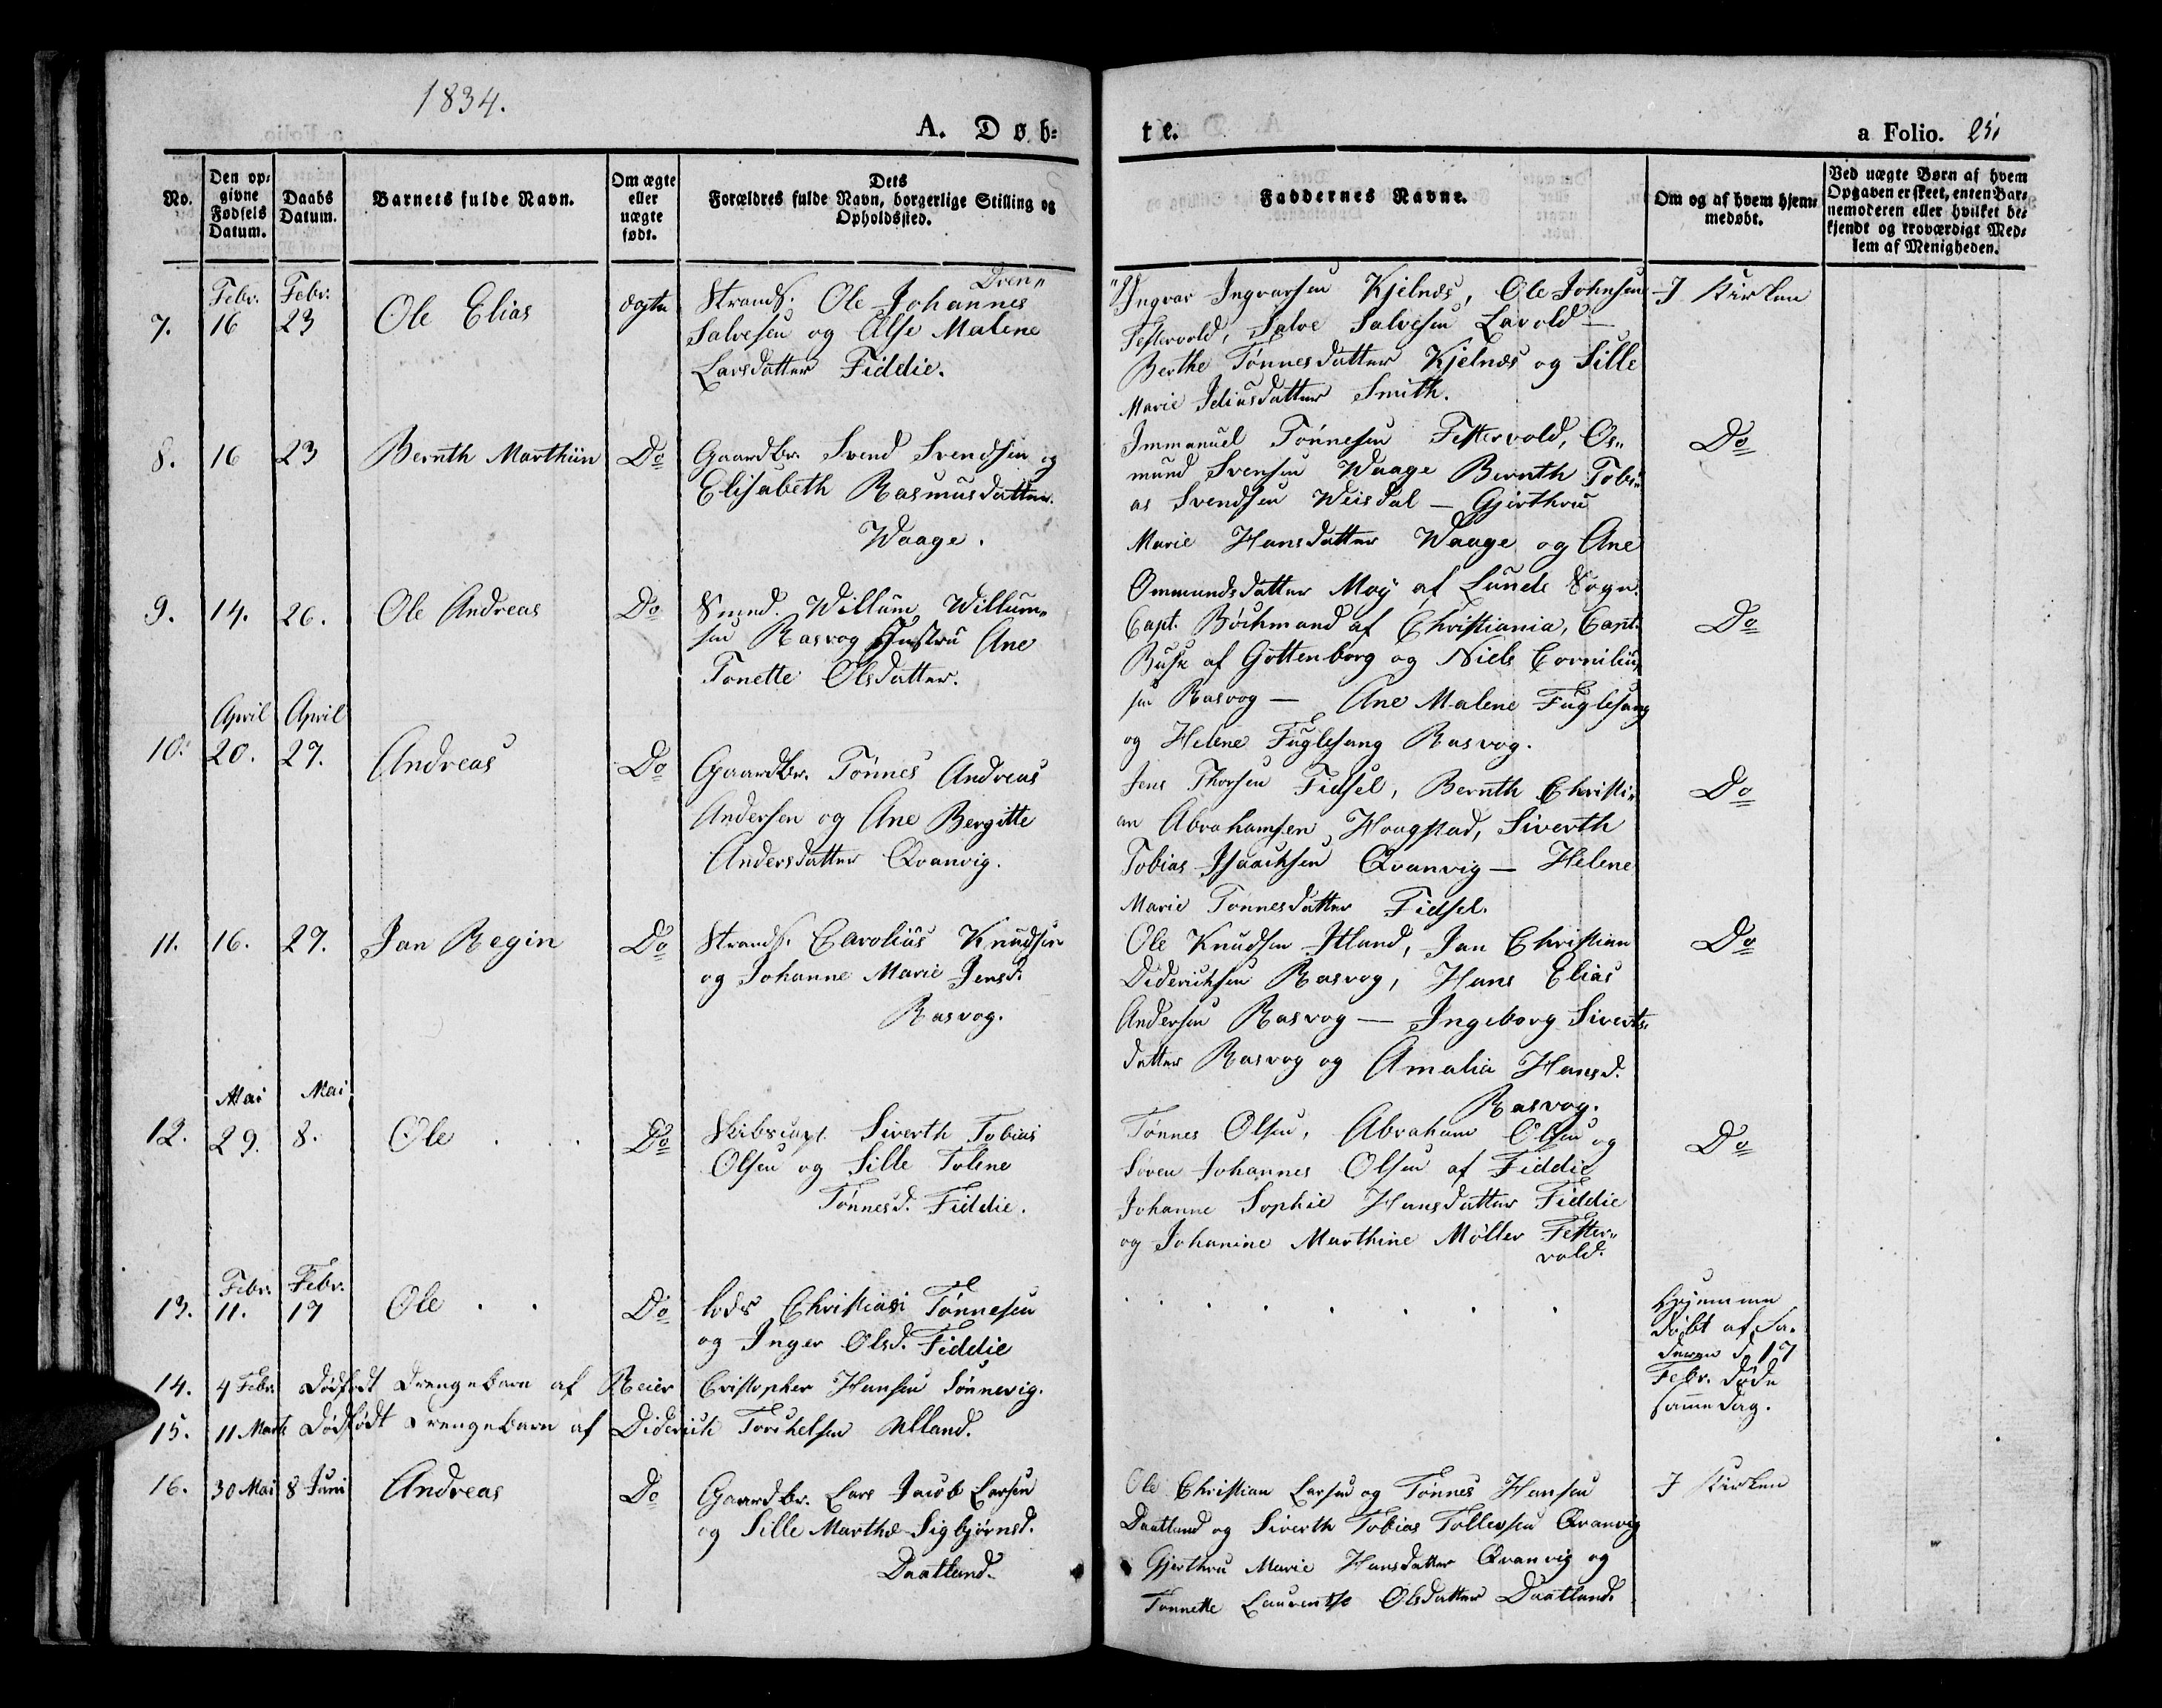 1834.
A. Døb=
te.
a Folio. 25.
No.
Den op=
givne
Fødsels
Datum.
Daabs
Datum.
Barnets fulde Navn.
Om ægte
eller
uægte
født.
Dets
Forældres fulde Navn, borgerlige Stilling og
Opholdssted.
Faddernes Navne.
Om og af hvem hjem=
medøbt.
Ved uægte Børn af hvem
Opgaven er skeet, enten Bar=
nemoderen eller hvilket be=
kjendt og troværdigt Med=
lem af Menigheden.
7.
Febr.
16
Febr.
23
Ole Elias
ægte
Strands. Ole Johannes
Salvesen og Else Malene
Larsdatter Fiddie.
Ingvar Ingvarsen Kjelnæs, Ole Johnsen
Festervold, Salve Salvesen Lavold –
Berthe Tønnesdatter Kjelnæs og Sille
Marie Eliasdatter Smith.
I Kirken
8.
16
23
Bernth Marthiin
Do
Gaardbr. Svend Svendsen og
Elisabeth Rasmusdatter
Waage.
Immanuel Tønnesen Festervold, Os„
mund Svensen Waage Bernth Tobi„
as Svendsen Weisdal – Gjerthru
Marie Hansdatter Waage og Ane
Ommundsdatter Moy af Lunde Sogn.
Do
9.
14.
26.
Ole Andreas
Do
Smed. Willum Willum„
sen Rasvog Hustru Ane
Tonette Olsdatter.
Capt. Böckmand af Christiania, Capt.
Buse af Gottenborg og Niels Corneliu„
sen Rasvog – Ane Malene Fuglesang
og Helene Fuglesang Rasvog.
Do
10.
April
20.
April
27.
Andreas
Do
Gaardbr. Tönnes Andreas
Andersen og Ane Bergitte
Andersdatter Qvanvig.
Jens Thorsen Fidsel, Bernth Christi„
an Abrahamsen Haagstad, Siverth
Tobias Isaachsen Qvanvig – Helene
Marie Tønnesdatter Fidsel.
Do
11.
16.
27.
Jan Regin
Do
Strands. Carolius Knudsen
og Johanne Marie Jensd.
Rasvog.
Ole Knudsen Itland, Jan Christian
Dideriksen Rasvog, Hans Elias
Andersen Rasvog – Ingeborg Siverts„
datter Rasvog og Amalia Hansd.
Rasvog.
Do
12.
Mai
29.
Mai
8.
Ole
Do
Skibscapt. Siverth Tobias
Olsen og Sille Tolene
Tønnesd. Fiddie.
Tønnes Olsen, Abraham Olsen og
Søren Johannes Olsen af Fiddie
Johanne Sophie Hansdatter Fiddie
og Johanine Marthine Møller Fester„
vold.
Do
13.
Febr.
11.
Febr.
17
Ole
Do
Lods Christian Tønnesen
og Inger Olsd. Fiddie
Hjemme
døbt af Fa„
deren d. 17
Febr. døde
samme dag.
14.
4 Febr. Dødfødt Drengebarn af Reier Cristopher Hansen Sønnevig.
15.
11 Marts Dødfødt Drengebarn af Diderich Torchelsen Uland.
16.
30 Mai
8 Juni
Andreas
Do
Gaardbr. Lars Jacob Larsen
og Sille Marthe Sigbjørnsd.
Daatland.
Ole Christian Larsen og Tønnes Hansen
Daatland og Siverth Tobias Tollevsen Qvanvig
Gjerthru Marie Hansdatter Qvanvig og
Tonnette Laurentse Olsdatter Daatland.
I Kirken